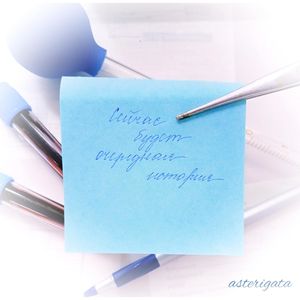 Сейчас
будет
очередная
история
asterigata